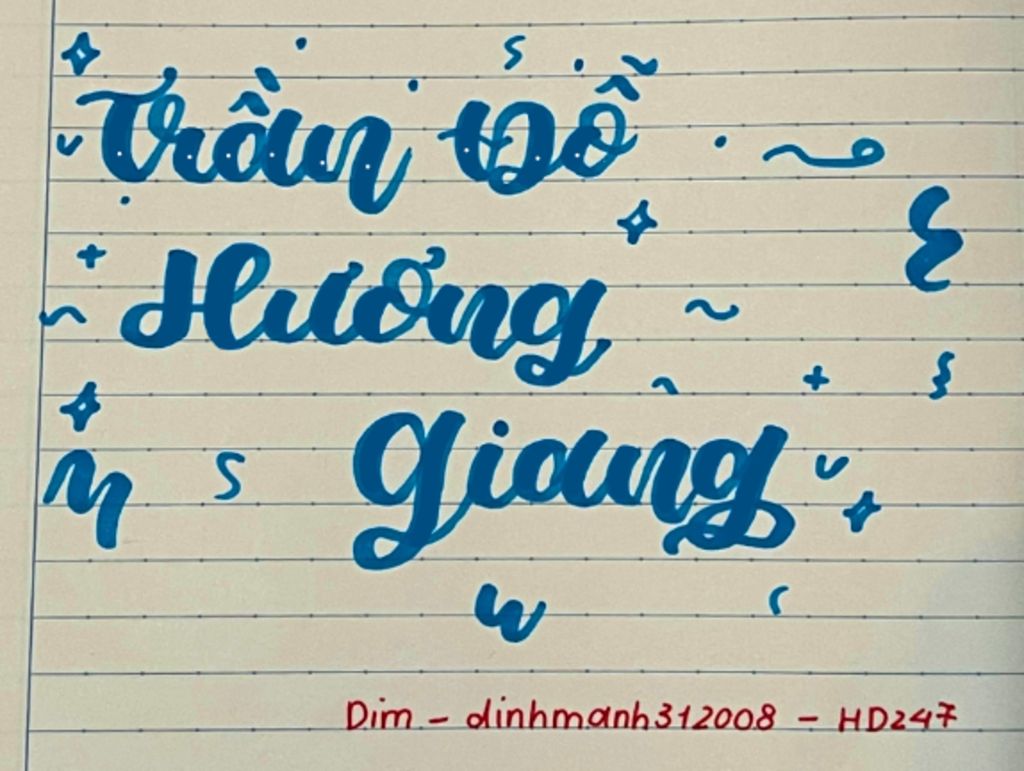 Trần Đỗ
Hương
Giang
Dim - dinhmanh312008 - HD247